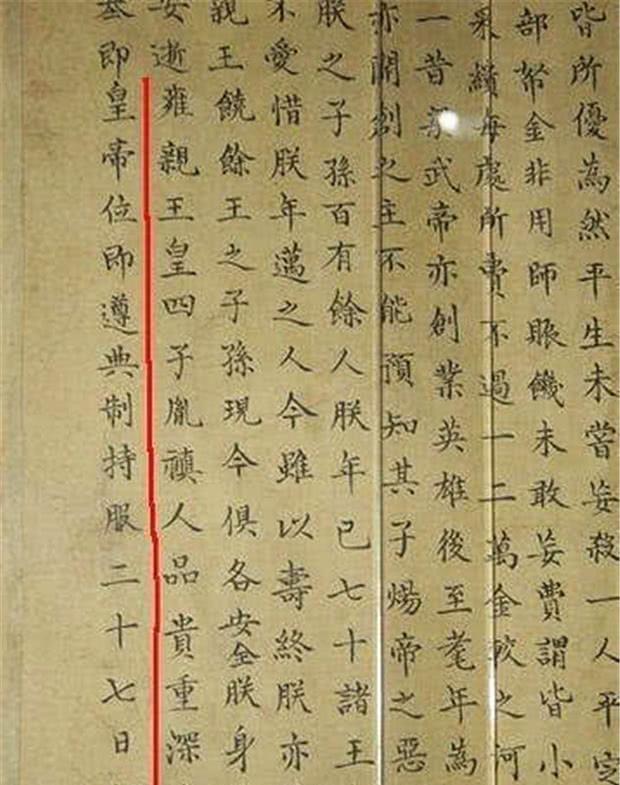 皆所優為然平生未嘗妄殺一人平定
部帑金非用師賑饑未敢妄費謂皆小
采繢每處所費不過一二萬金較之河
一昔梁武帝亦創業英雄後至耄年為
亦開創之主不能預知其子煬帝之惡
朕之子孫百有餘人朕年已七十諸王
不愛惜朕年邁之人今雖以壽終朕亦
親王饒餘王之子孫現今俱各安全朕身
安逝雍親王皇四子胤禛人品貴重深
基即皇帝位即遵典制持服二十七日